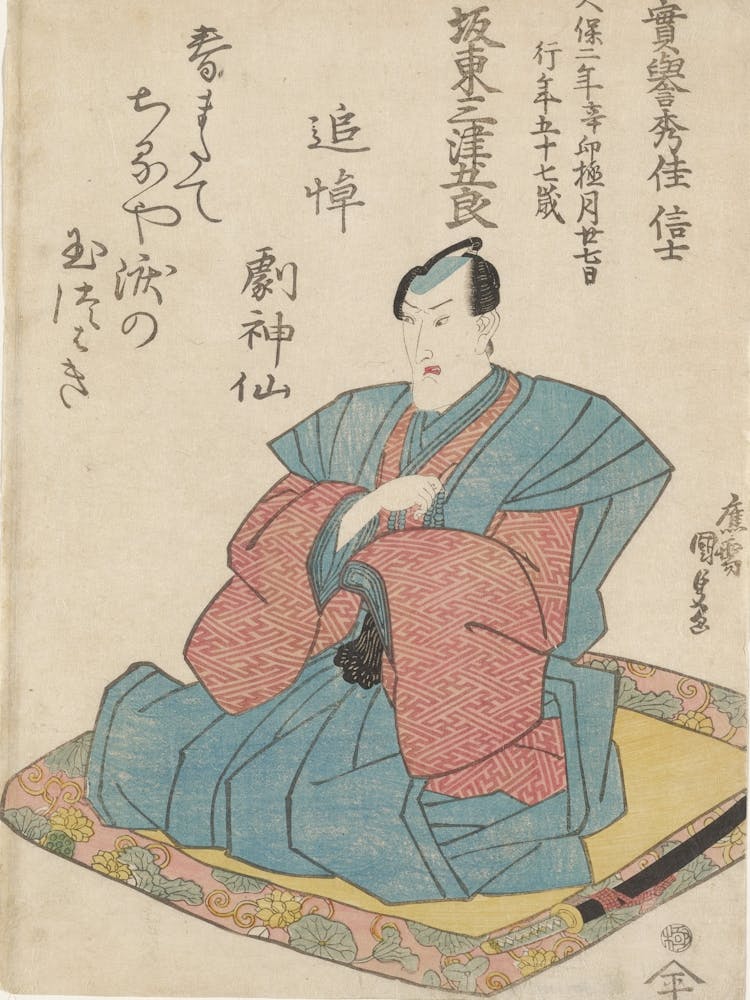 實譽秀佳信士
天保二年辛卯極月廿七日
行年五十七歳
坂東三津五良
追悼
劇神仙
春またて
ちるや涙の
玉つはき
應需
国貞画
極